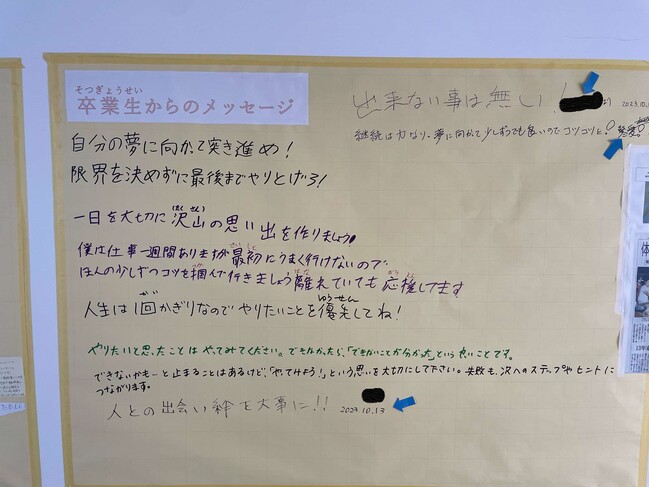 そつぎょうせい
卒業生からのメッセージ
出来ない事は無い!
より 2023.10.
継続は力なり、夢に向かって少しずつでも良いのでコツコツと!
自分の夢に向かって突き進め!
限界を決めずに最後までやりとげろ!
たくさん
一日を大切に沢山の思い出を作りましょう
僕は仕事一週間ありますが最初にうまく行けないので
ほんの少しずつコツを掴んで行きましょう離れていても応援してます
ゆうせん
人生は1回かぎりなのでやりたいことを優先してね!
やりたいと思ったことはやってみてください。できなかったら、「できないことが分かった」という良いことです。
できないかもーと止まることはあるけど、「やってみよう!」という思いを大切にして下さい。失敗も、次へのステップやヒントに
つながります。
人との出会い絆を大事に!!
2023.10.13